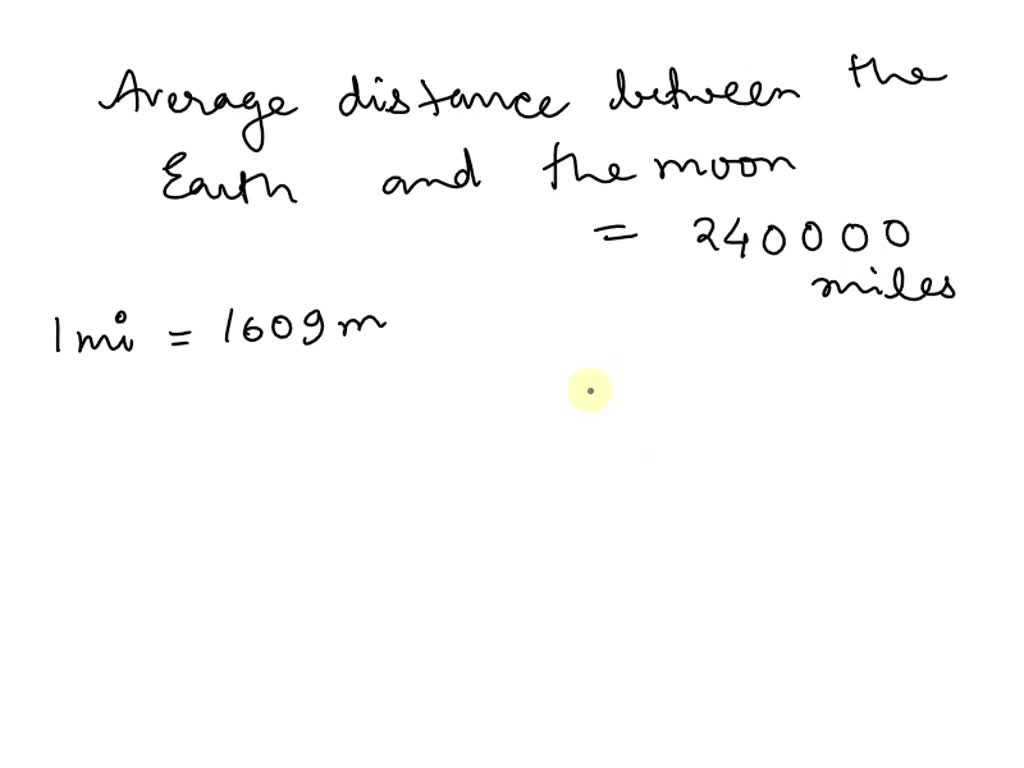 Average distance between the
Earth and the moon
= 240000
miles
1 mi = 1609 m